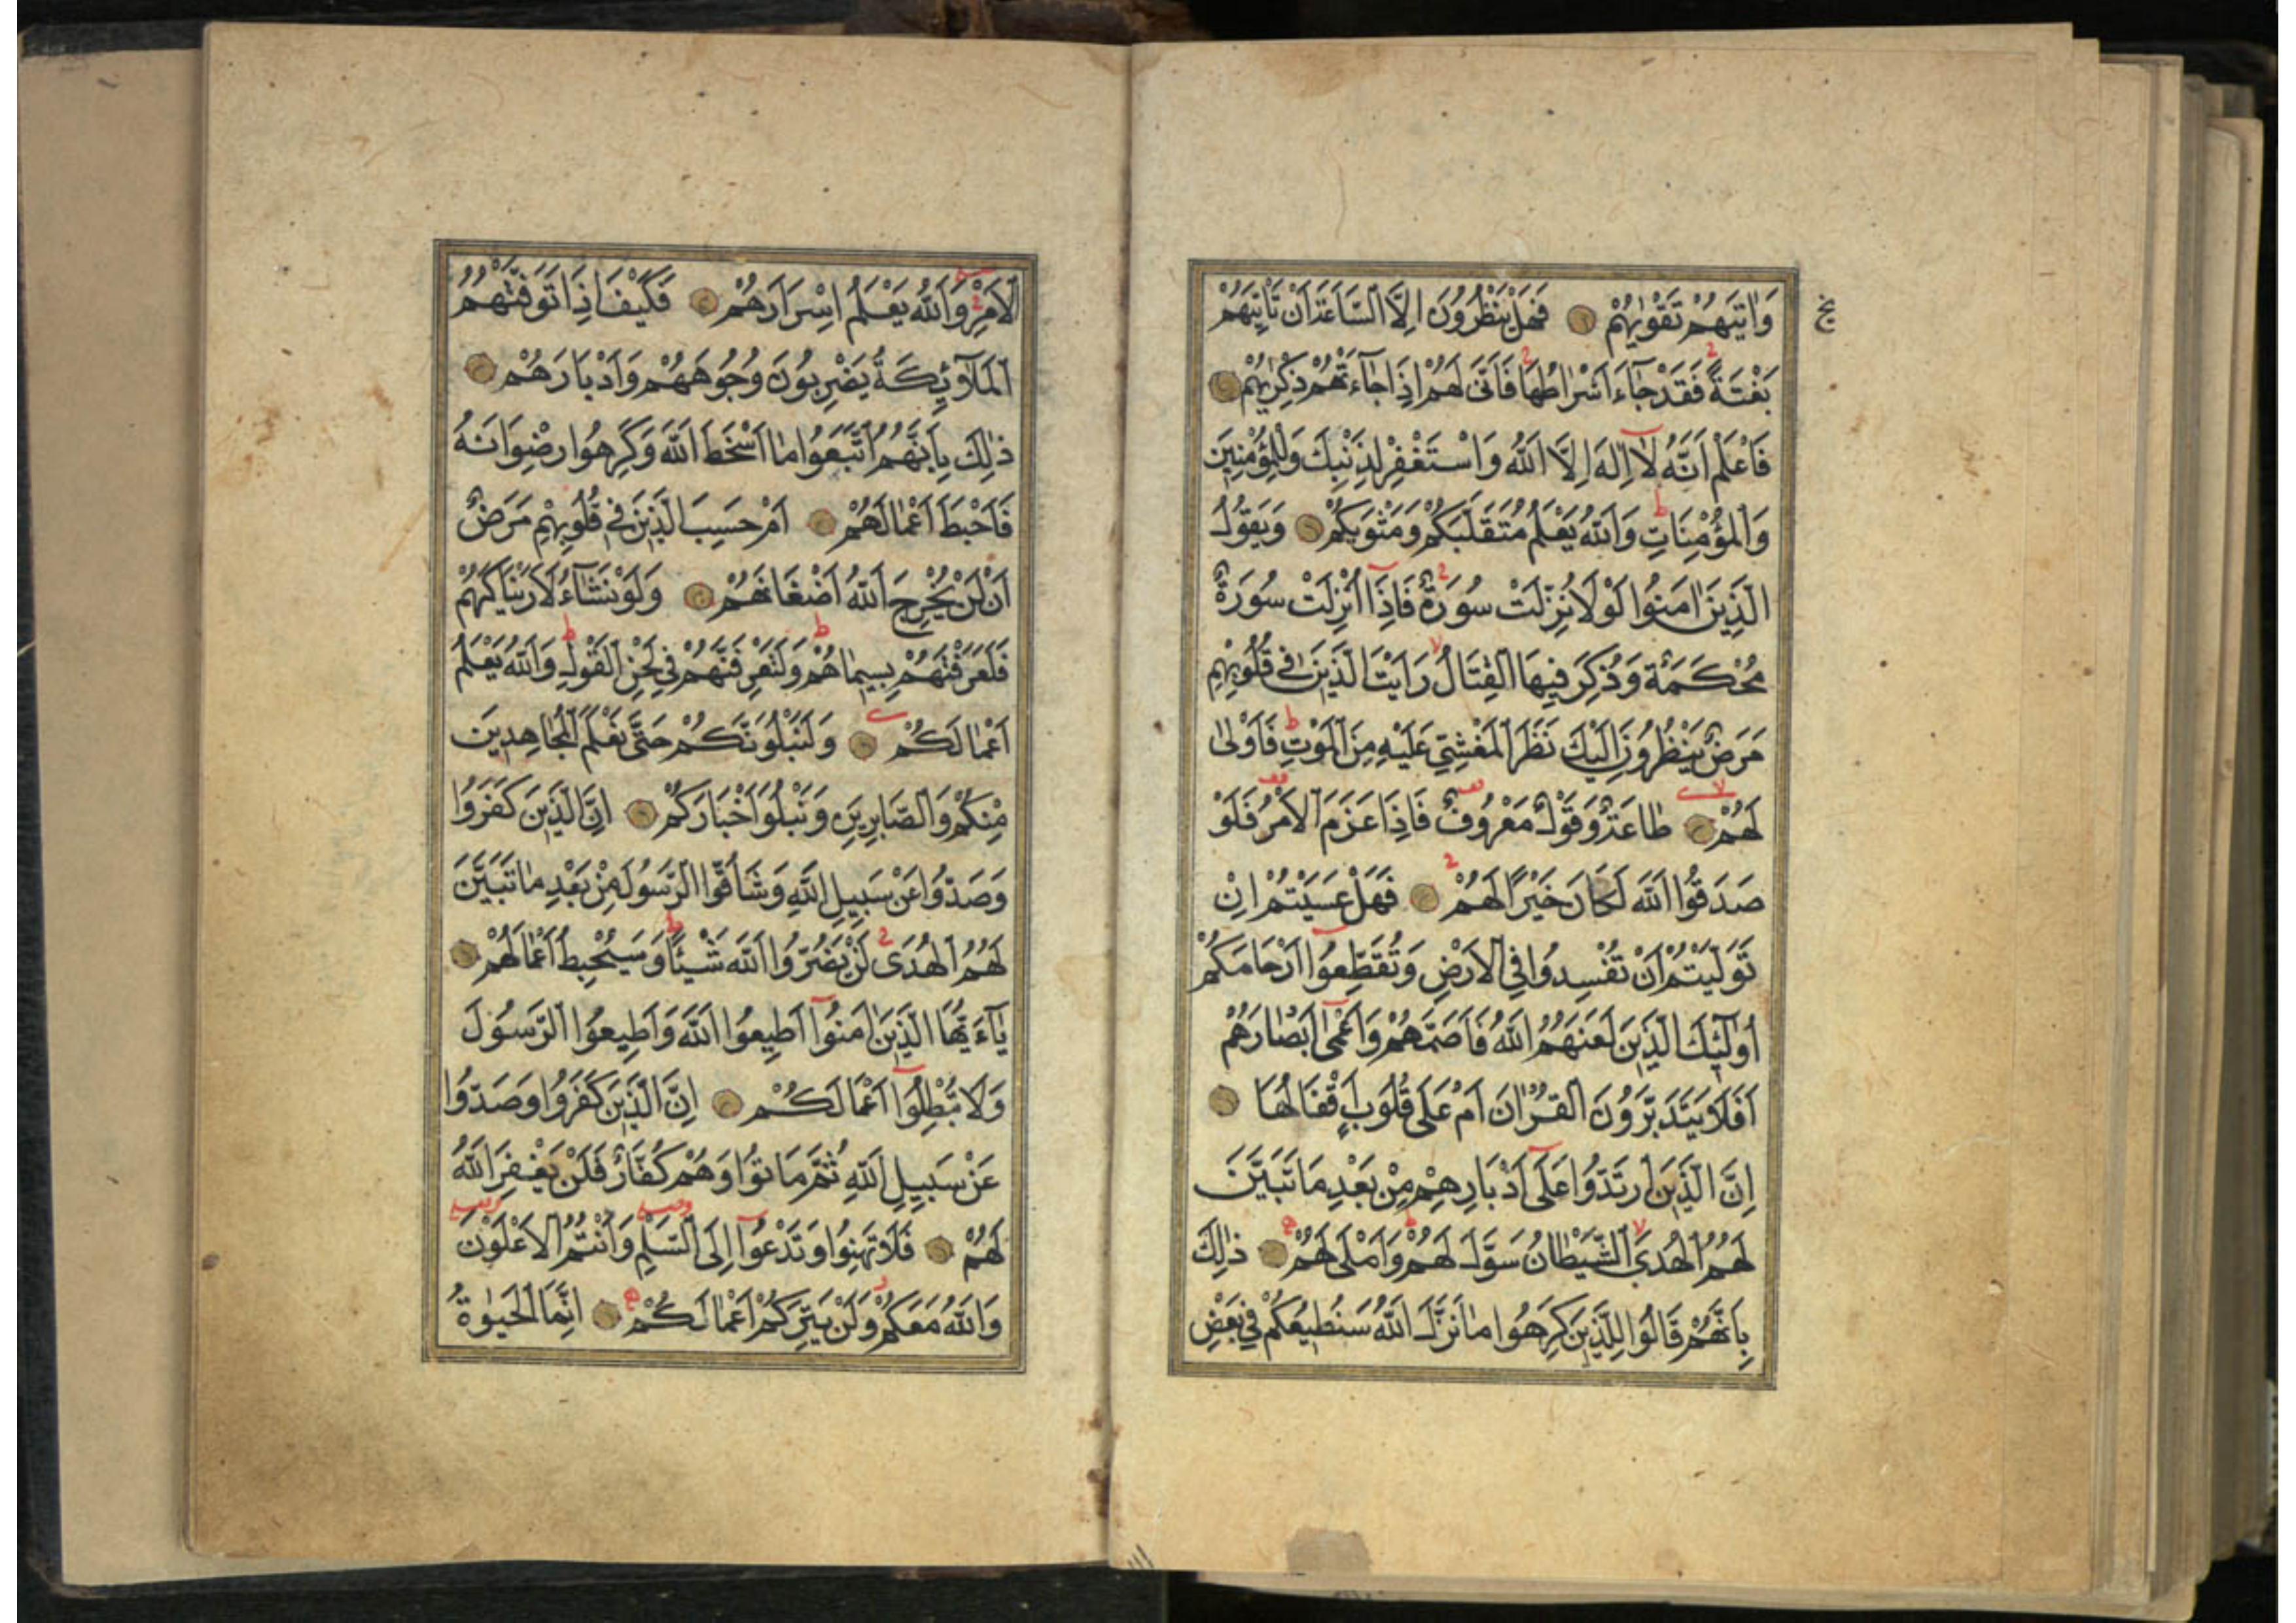 وَاٰتٰيهُمْ تَقْوٰيهُمْ فَهَلْ يَنْظُرُونَ اِلَّا السَّاعَةَ اَنْ تَأْتِيَهُمْ
بَغْتَةً فَقَدْ جَآءَ اَشْرَاطُهَا فَاَنّٰى لَهُمْ اِذَا جَآءَتْهُمْ ذِكْرٰيهُمْ
فَاعْلَمْ اَنَّهُ لَآ اِلٰهَ اِلَّا اللّٰهُ وَاسْتَغْفِرْ لِذَنْبِكَ وَلِلْمُؤْمِنِينَ
وَالْمُؤْمِنَاتِ وَاللّٰهُ يَعْلَمُ مُتَقَلَّبَكُمْ وَمَثْوٰيكُمْ وَيَقُولُ
الَّذِينَ اٰمَنُوا لَوْلَا نُزِّلَتْ سُورَةٌ فَاِذَآ اُنْزِلَتْ سُورَةٌ
مُحْكَمَةٌ وَذُكِرَ فِيهَا الْقِتَالُ رَاَيْتَ الَّذِينَ فِي قُلُوبِهِمْ
مَرَضٌ يَنْظُرُونَ اِلَيْكَ نَظَرَ الْمَغْشِيِّ عَلَيْهِ مِنَ الْمَوْتِ فَاَوْلٰى
لَهُمْ طَاعَةٌ وَقَوْلٌ مَعْرُوفٌ فَاِذَا عَزَمَ الْاَمْرُ فَلَوْ
صَدَقُوا اللّٰهَ لَكَانَ خَيْرًا لَهُمْ فَهَلْ عَسَيْتُمْ اِنْ
تَوَلَّيْتُمْ اَنْ تُفْسِدُوا فِي الْاَرْضِ وَتُقَطِّعُوآ اَرْحَامَكُمْ
اُولٰٓئِكَ الَّذِينَ لَعَنَهُمُ اللّٰهُ فَاَصَمَّهُمْ وَاَعْمٰٓى اَبْصَارَهُمْ
اَفَلَا يَتَدَبَّرُونَ الْقُرْاٰنَ اَمْ عَلٰى قُلُوبٍ اَقْفَالُهَا
اِنَّ الَّذِينَ ارْتَدُّوا عَلٰٓى اَدْبَارِهِمْ مِنْ بَعْدِ مَا تَبَيَّنَ
لَهُمُ الْهُدَى الشَّيْطَانُ سَوَّلَ لَهُمْ وَاَمْلٰى لَهُمْ ذٰلِكَ
بِاَنَّهُمْ قَالُوا لِلَّذِينَ كَرِهُوا مَا نَزَّلَ اللّٰهُ سَنُطِيعُكُمْ فِي بَعْضِ
الْاَمْرِ وَاللّٰهُ يَعْلَمُ اِسْرَارَهُمْ فَكَيْفَ اِذَا تَوَفَّتْهُمُ
الْمَلٰٓئِكَةُ يَضْرِبُونَ وُجُوهَهُمْ وَاَدْبَارَهُمْ
ذٰلِكَ بِاَنَّهُمُ اتَّبَعُوا مَآ اَسْخَطَ اللّٰهَ وَكَرِهُوا رِضْوَانَهُ
فَاَحْبَطَ اَعْمَالَهُمْ اَمْ حَسِبَ الَّذِينَ فِي قُلُوبِهِمْ مَرَضٌ
اَنْ لَنْ يُخْرِجَ اللّٰهُ اَضْغَانَهُمْ وَلَوْ نَشَآءُ لَاَرَيْنَاكَهُمْ
فَلَعَرَفْتَهُمْ بِسِيمَاهُمْ وَلَتَعْرِفَنَّهُمْ فِي لَحْنِ الْقَوْلِ وَاللّٰهُ يَعْلَمُ
اَعْمَالَكُمْ وَلَنَبْلُوَنَّكُمْ حَتّٰى نَعْلَمَ الْمُجَاهِدِينَ
مِنْكُمْ وَالصَّابِرِينَ وَنَبْلُوَا اَخْبَارَكُمْ اِنَّ الَّذِينَ كَفَرُوا
وَصَدُّوا عَنْ سَبِيلِ اللّٰهِ وَشَآقُّوا الرَّسُولَ مِنْ بَعْدِ مَا تَبَيَّنَ
لَهُمُ الْهُدٰى لَنْ يَضُرُّوا اللّٰهَ شَيْئًا وَسَيُحْبِطُ اَعْمَالَهُمْ
يَآ اَيُّهَا الَّذِينَ اٰمَنُوآ اَطِيعُوا اللّٰهَ وَاَطِيعُوا الرَّسُولَ
وَلَا تُبْطِلُوآ اَعْمَالَكُمْ اِنَّ الَّذِينَ كَفَرُوا وَصَدُّوا
عَنْ سَبِيلِ اللّٰهِ ثُمَّ مَاتُوا وَهُمْ كُفَّارٌ فَلَنْ يَغْفِرَ اللّٰهُ
لَهُمْ فَلَا تَهِنُوا وَتَدْعُوآ اِلَى السَّلْمِ وَاَنْتُمُ الْاَعْلَوْنَ
وَاللّٰهُ مَعَكُمْ وَلَنْ يَتِرَكُمْ اَعْمَالَكُمْ اِنَّمَا الْحَيٰوةُ